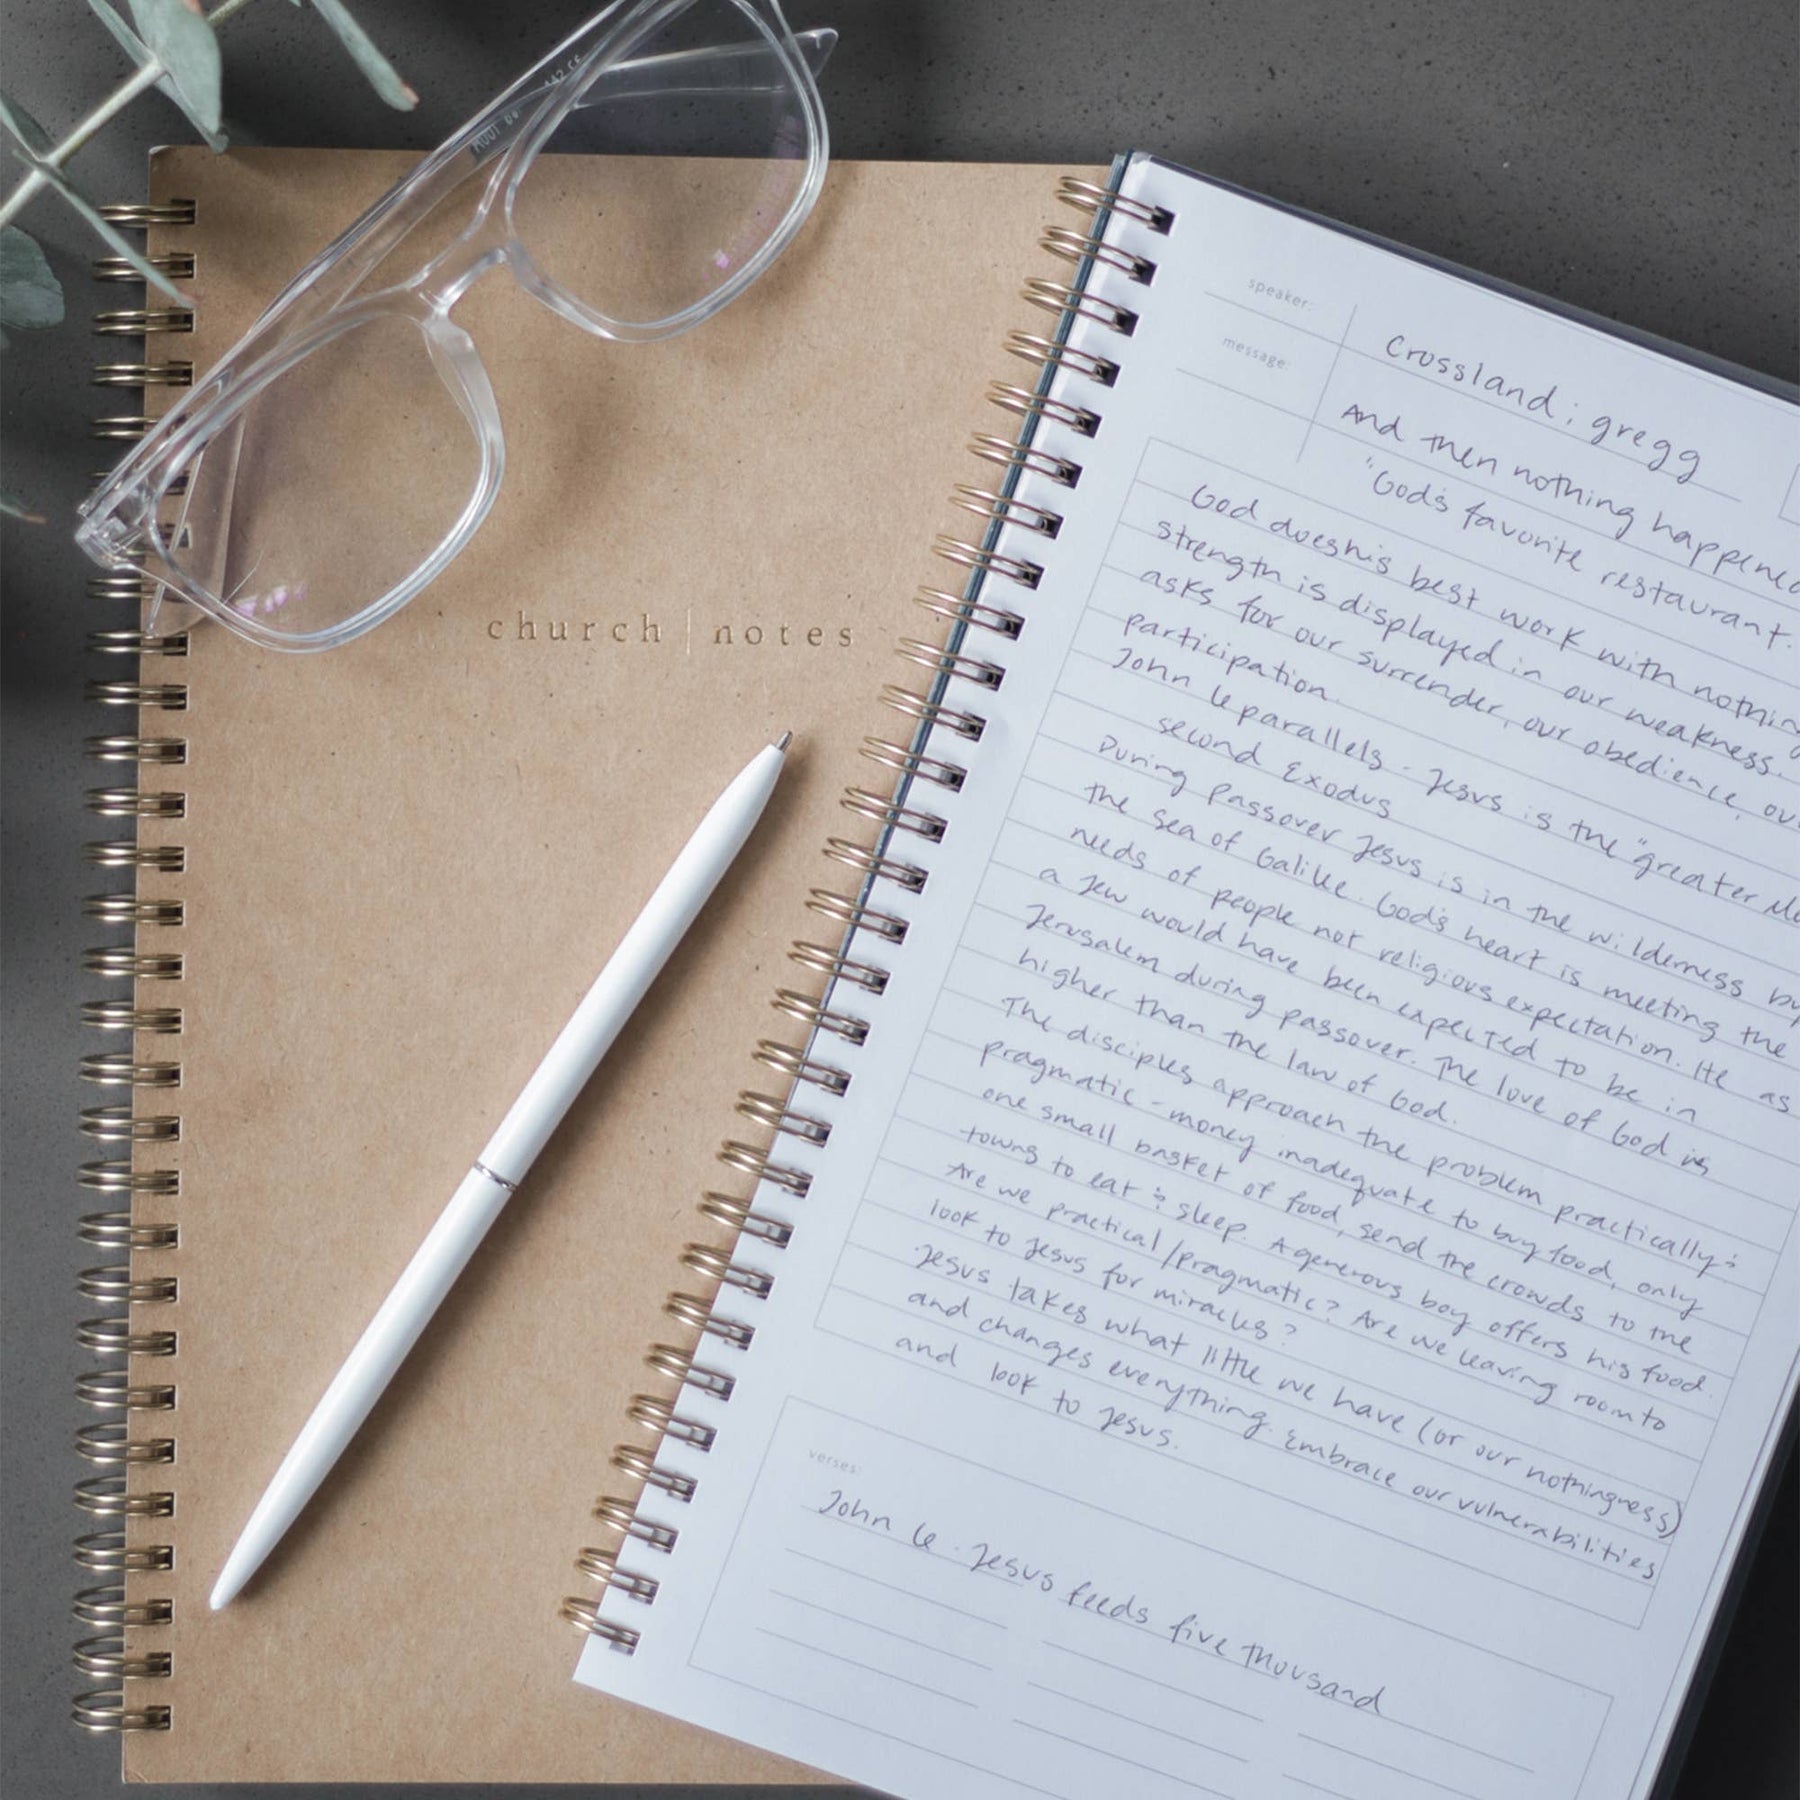 church | notes
speaker:
Crossland ; gregg
message:
And then nothing happened
"God's favorite restaurant.
God does his best work with nothing
strength is displayed in our weakness.
asks for our surrender, our obedience, our
participation.
John 6 parallels - Jesus is the "greater Mo
second Exodus
During Passover Jesus is in the wilderness by
the Sea of Galilee. God's heart is meeting the
needs of people not religious expectation. He as
a Jew would have been expected to be in
Jerusalem during passover. The love of God is
higher than the law of God.
The disciples approach the problem practically &
pragmatic - money inadequate to buy food, only
one small basket of food, send the crowds to the
towns to eat & sleep. A generous boy offers his food.
Are we practical/pragmatic? Are we leaving room to
look to Jesus for miracles?
Jesus takes what little we have (or our nothingness)
and changes everything. Embrace our vulnerabilities
and look to Jesus.
verses:
John 6 . Jesus feeds five thousand